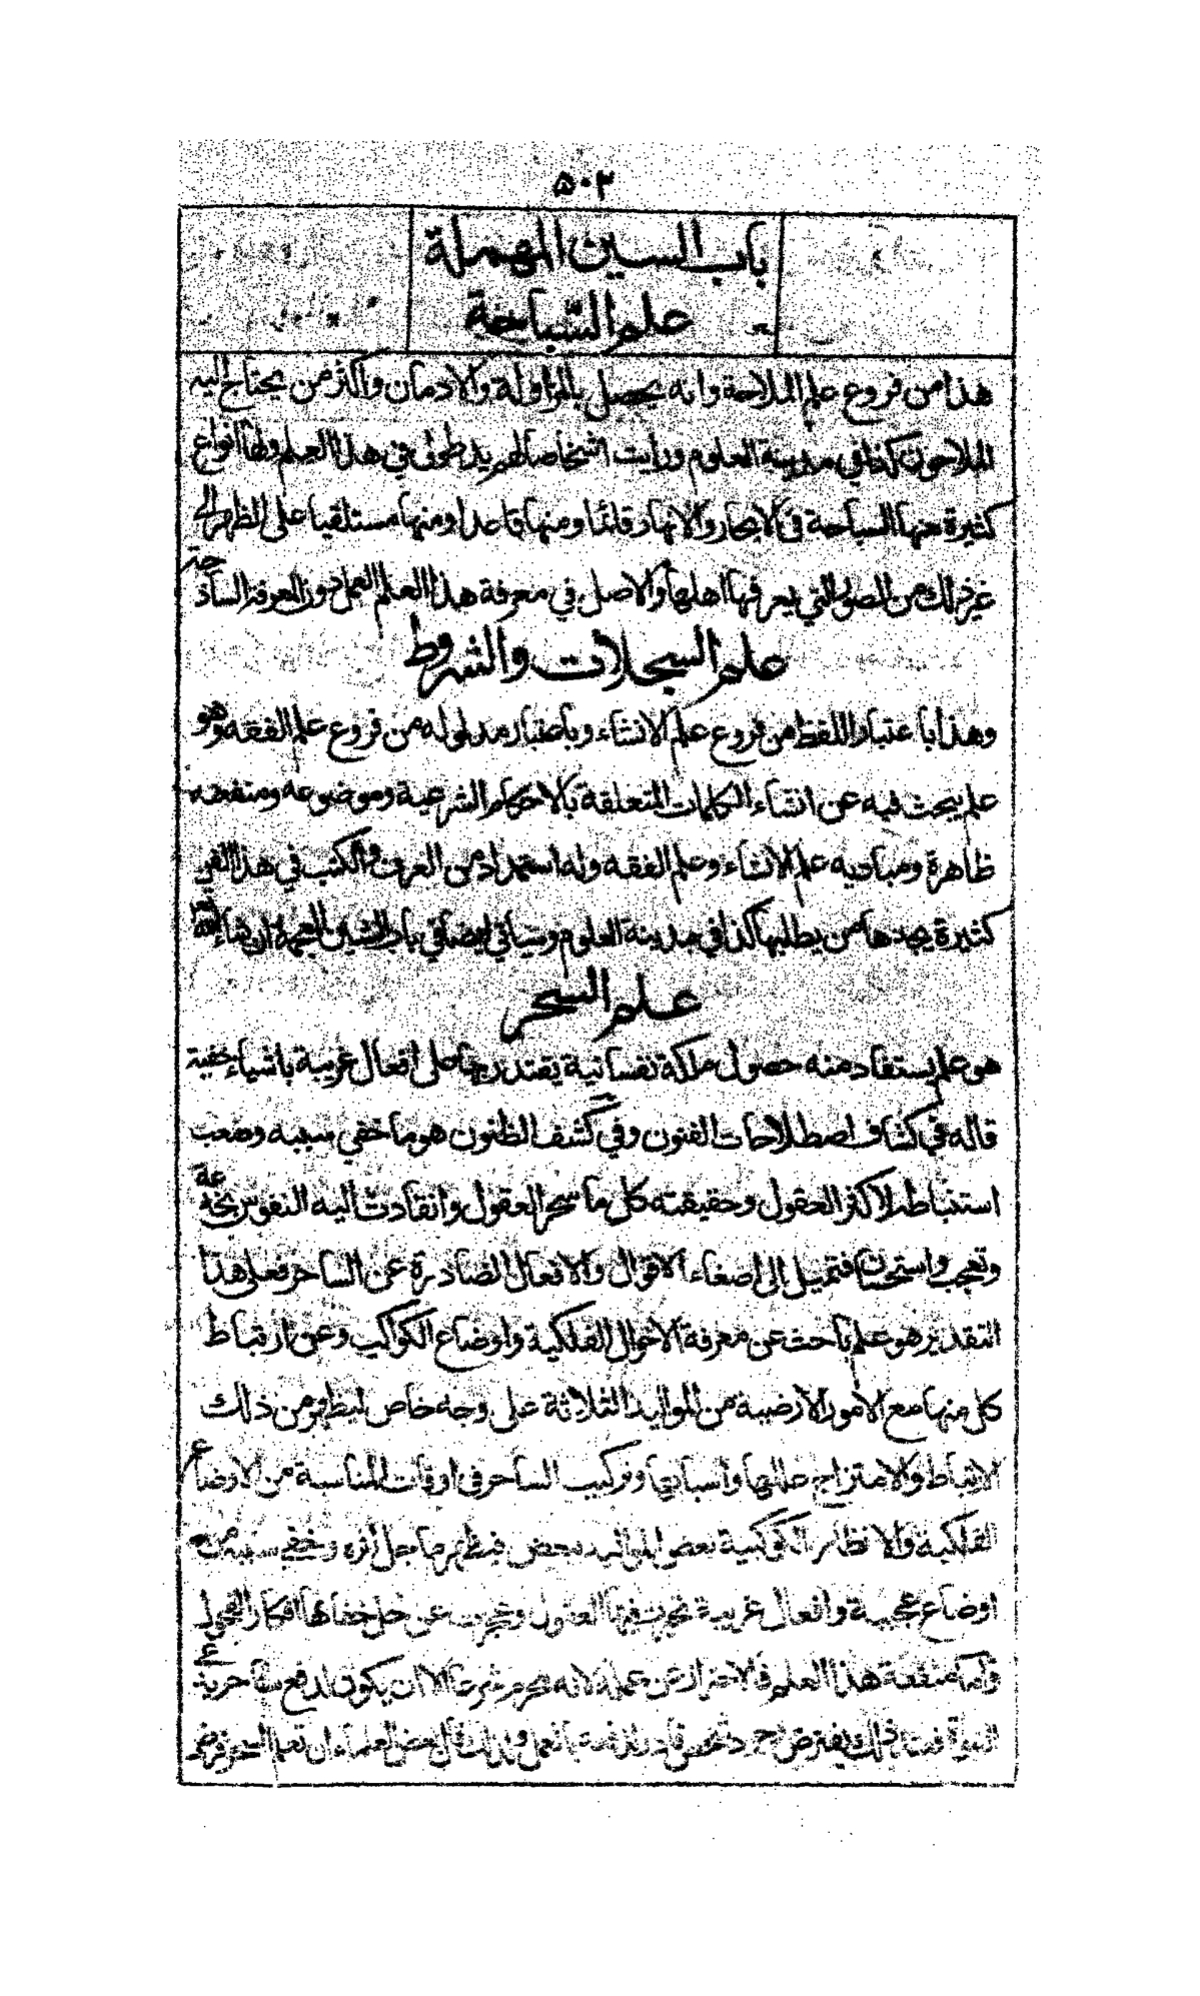 ٥٠٢
باب السين المهملة
علم السباحة
هذا من فروع علم الملاحة وانه يحصل بالمزاولة والادمان واكثر من يحتاج اليه
الملاحون كذا في مدينة العلوم ورايت اشخاصا لهم يد طولى في هذا العلم ولها انواع
كثيرة منها السباحة في الابحار والانهار قائما ومنها قاعدا ومنها مستلقيا على الظهر الى
غير ذلك من الصور التي يعرفها اهلها والاصل في معرفة هذا العلم العمل دون المعرفة الساذجة
علم السجلات والشروط
وهذا باعتبار اللفظ من فروع علم الانشاء وباعتبار مدلوله من فروع علم الفقه وهو
علم يبحث فيه عن انشاء الكلمات المتعلقة بالاحكام الشرعية وموضوعه ومنفعته
ظاهرة ومباديه علم الانشاء وعلم الفقه وله استمداد من العرف والكتب في هذا الفن
كثيرة يجدها من يطلبها كذا في مدينة العلوم وسياتي ايضا في باب الشين المعجمة ان شاء الله تعالى
علم السحر
هو علم يستفاد منه حصول ملكة نفسانية يقتدر بها على افعال غريبة باشياء خفية
قاله في كشاف اصطلاحات الفنون وفي كشف الظنون هو ما خفي سببه وصعب
استنباطه لاكثر العقول وحقيقته كل ما سحر العقول وانقادت اليه النفوس بخدعة
وتعجب واستحسان فتميل إلى اصغاء الاقوال والافعال الصادرة عن الساحر فعلى هذا
التقدير هو علم باحث عن معرفة الاحوال الفلكية واوضاع الكواكب وعن ارتباط
كل منها مع الامور الارضية من المواليد الثلاثة على وجه خاص ليظهر من ذلك
الارتباط والامتزاج عللها واسبابها وتركيب الساحر في اوقات المناسبة من الاوضاع
الفلكية والانظار الكوكبية بعض المواليد ببعض فيظهر ما جل اثره وخفي سببه من
اوضاع عجيبة وافعال غريبة تحيرت فيها العقول وعجزت عن حل خفائها افكار الفحول
واما منفعة هذا العلم فالاحتراز عن عمله لانه محرم شرعا الا ان يكون لدفع ساحر يدعي
النبوة فعند ذلك يفترض وجود شخص قادر لدفعه بالعمل ولذلك قال بعض العلماء ان تعلم السحر فرض